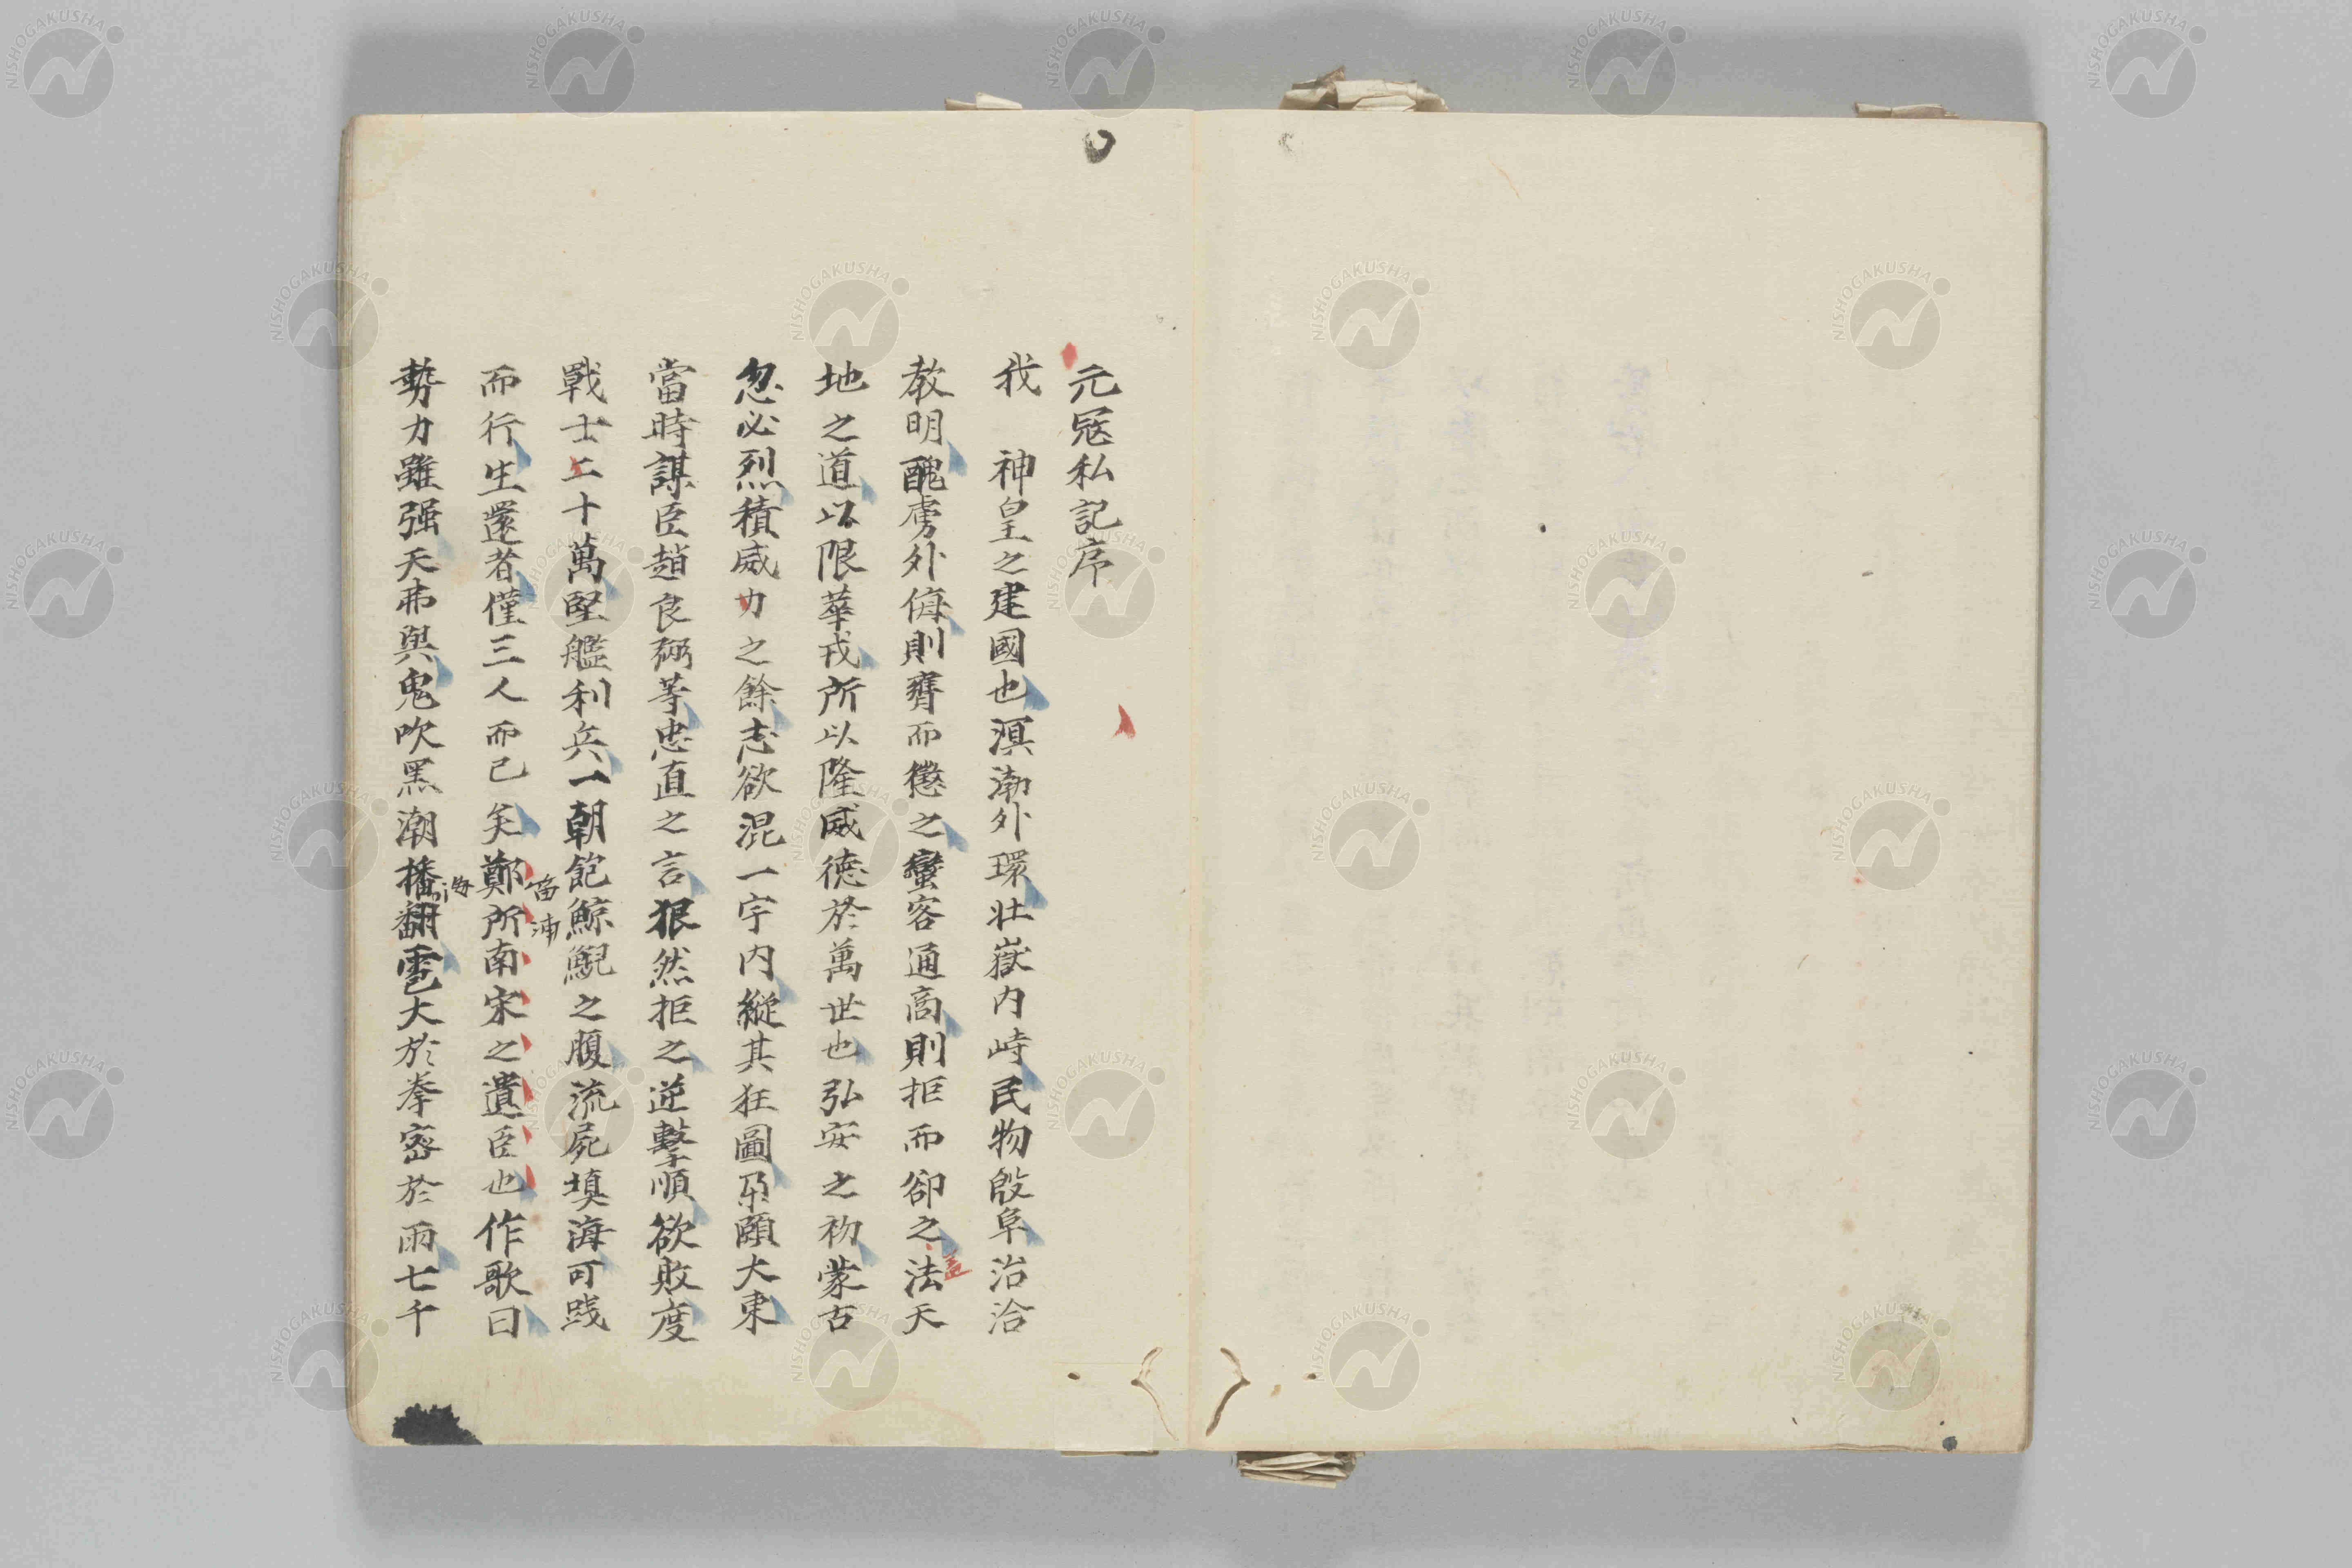 元冦私記序
我　神皇之建國也溟渤外環壯嶽内峙民物殷阜治洽
教明醜虜外侮則膺而懲之蠻客通商則拒而卻之法天
地之道以限華戎所以隆威德於萬世也弘安之初蒙古
忽必烈積威力之餘志欲混一宇内縱其狂圖朶頤大東
當時謀臣趙良弼等忠直之言狠然拒之逆擊順欲敗度
戰士二十萬堅艦利兵一朝飽鯨鯢之腹流屍填海可踐
而行生還者僅三人而已矣鄭所南宋之遺臣也作歌曰
勢力雖强天弗與鬼吹黑潮播翻雹大於拳密於雨七千
海
NISHOGAKUSHA